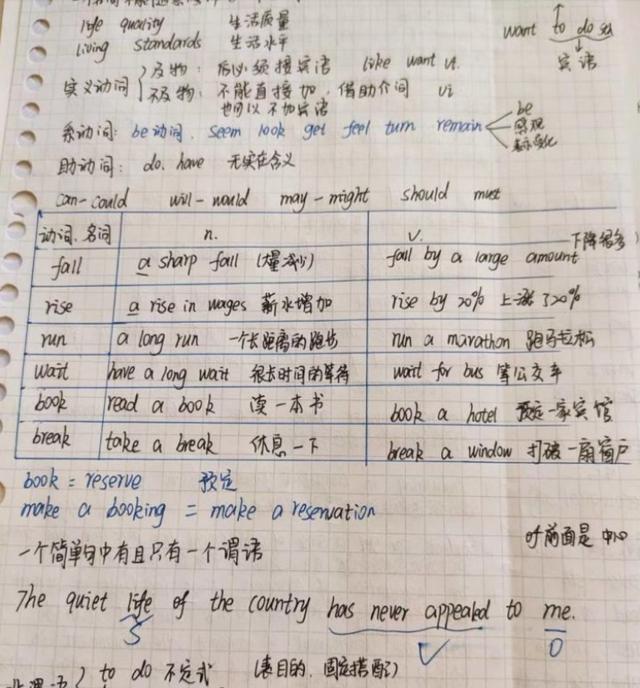 life quality 生活质量
living standards 生活水平
want to do sth
宾语
实义动词
及物: 后必须接宾语 like want vt.
不及物: 不能直接加, 借助介词 vi
也可以不加宾语
系动词: be动词. seem look get feel turn remain
be
感观
表示变化
助动词: do. have 无实在含义
can-could will-would may-might should must
动词.名词 n. v. 下降很多
fall a sharp fall (大量减少) fall by a large amount
rise a rise in wages 薪水增加 rise by 20% 上涨了20%
run a long run 一个长距离的跑步 run a marathon 跑马拉松
wait have a long wait 很长时间的等待 wait for bus 等公交车
book read a book 读一本书 book a hotel 预定一家宾馆
break take a break 休息一下 break a window 打破一扇窗户
book = reserve 预定
make a booking = make a reservation
of前面是中心
一个简单句中有且只有一个谓语
The quiet life of the country has never appealed to me.
S V O
to do 不定式 (表目的, 固定搭配)